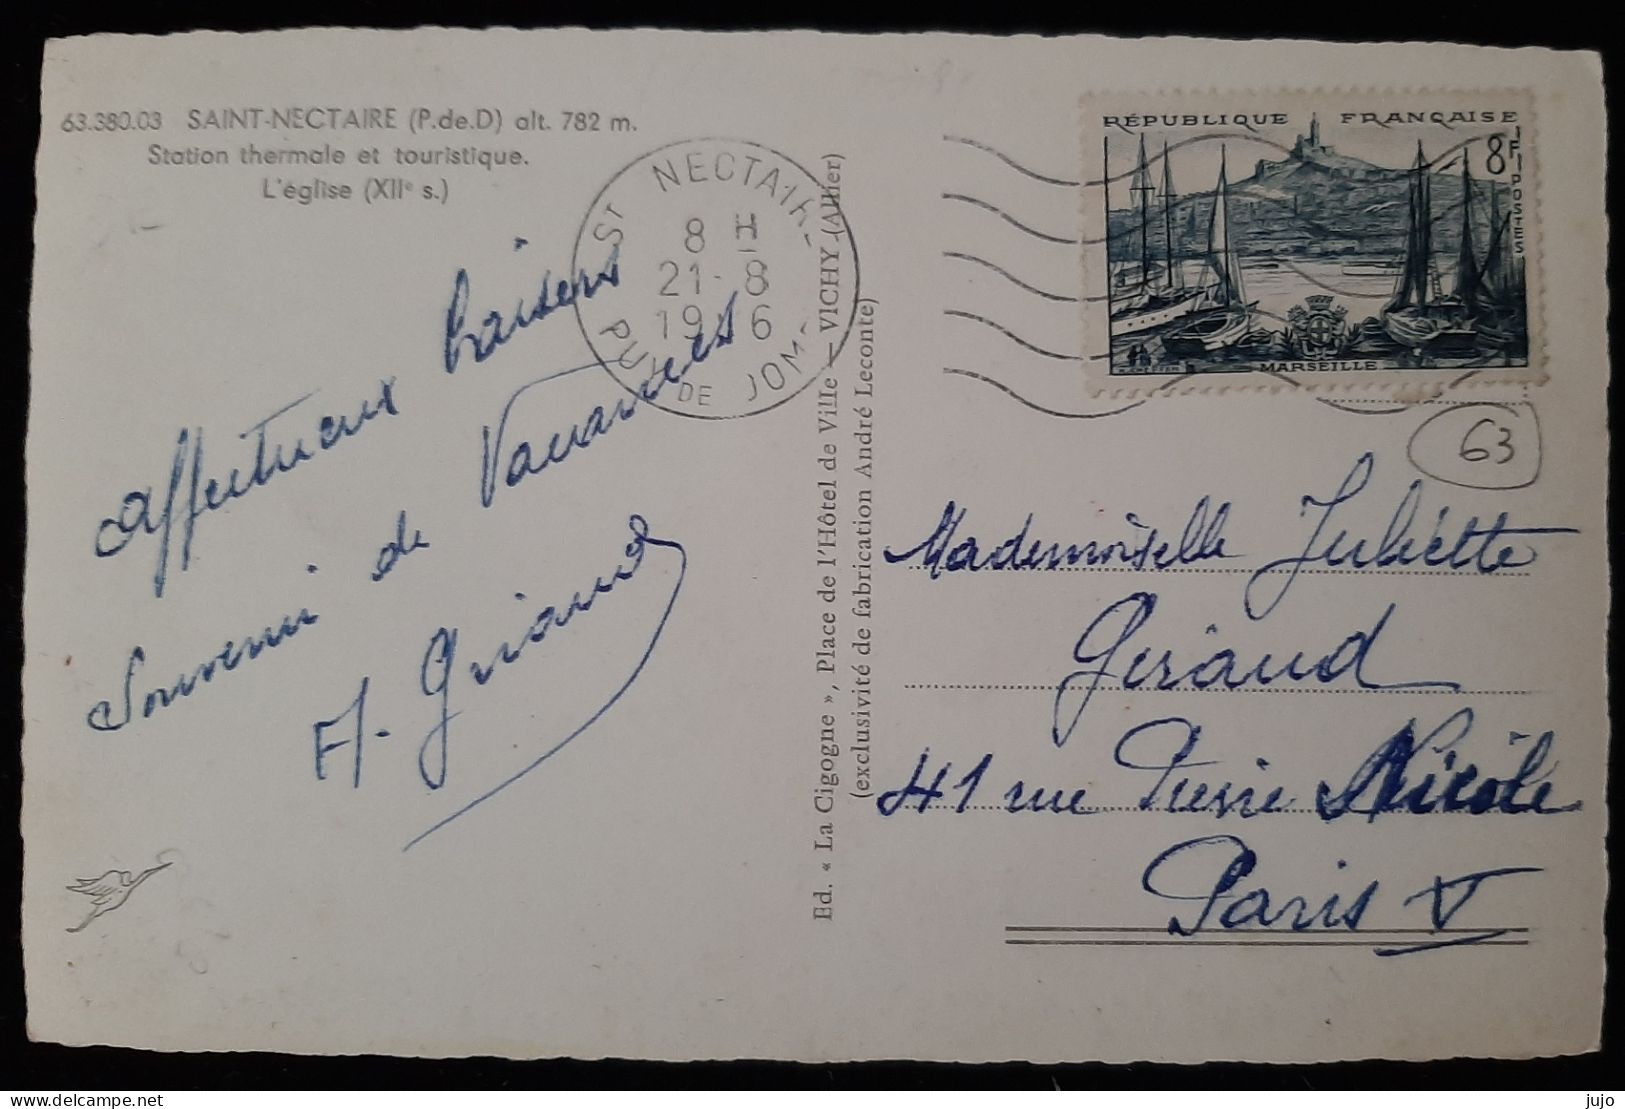 63.380.03 SAINT-NECTAIRE (P.de.D) alt. 782 m.
Station thermale et touristique.
L'église (XIIe s.)
affectueux baisers
Souvenir de Vacances
A. Giraud
ST NECTAIR-
8 H
21-8
19 6
PUY DE DOM-
Ed. « La Cigogne », Place de l'Hôtel de Ville — VICHY (Allier)
(exclusivité de fabrication André Leconte)
RÉPUBLIQUE FRANÇAISE
8F
POSTES
MARSEILLE
63
Mademoiselle Juliette
Giraud
41 rue Pierre Nicole
Paris V
delcampe.net
jujo